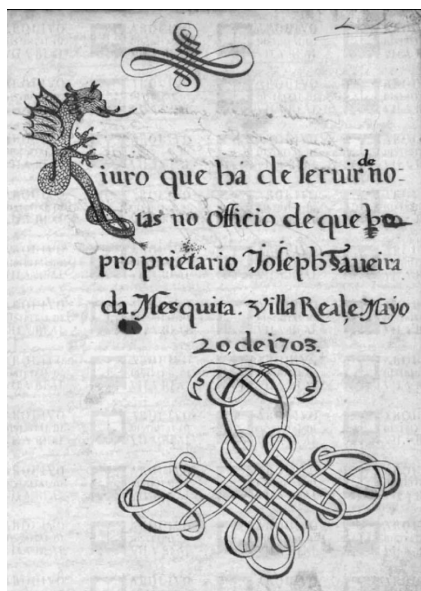 Liuro que há de seruir de no:
tas no Officio de que he
proprietario Joseph Taueira
da Mesquita. Villa Real e Mayo
20, de 1703.